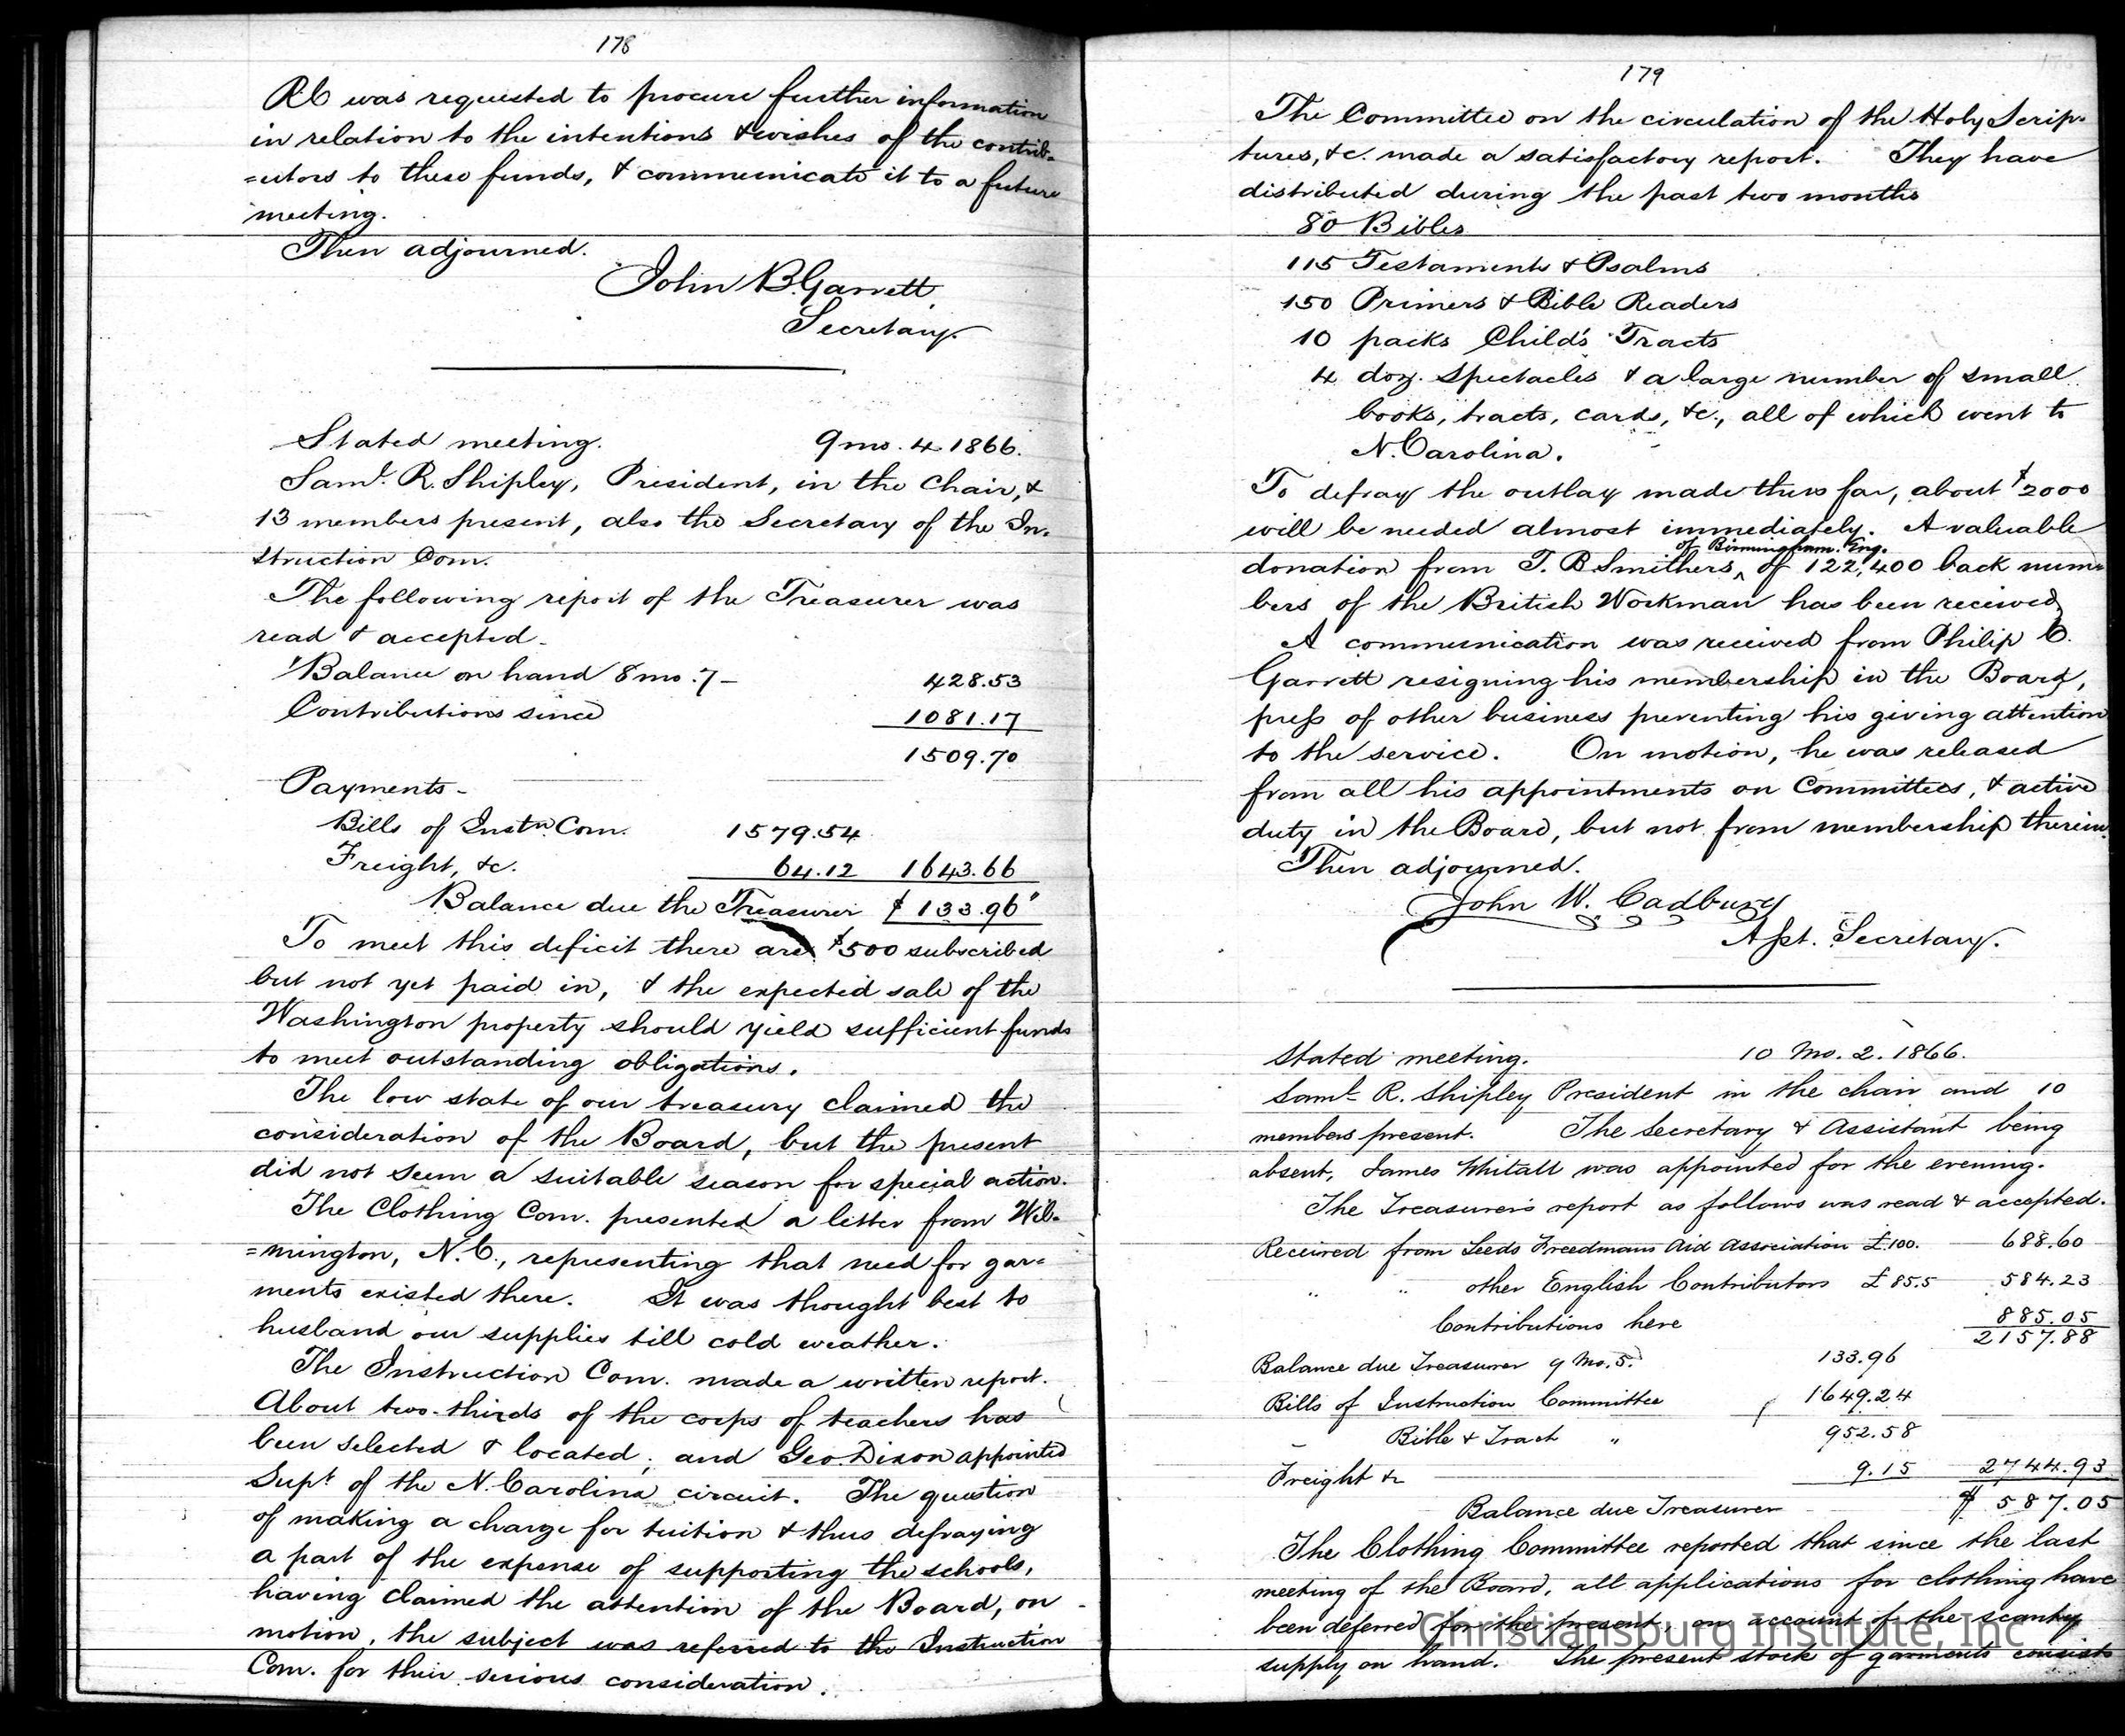 178
R.C. was requested to procure further information
in relation to the intentions & wishes of the contrib-
=utors to these funds, & communicate it to a future
meeting.
Then adjourned.
John B. Garrett,
Secretary.
Stated meeting. 9 mo. 4. 1866.
Saml. R. Shipley, President, in the Chair, &
13 members present, also the Secretary of the In-
struction Com.
The following report of the Treasurer was
read & accepted.
"Balance on hand 8 mo. 7 – 428.53
Contributions since 1081.17
1509.70
Payments –
Bills of Instn. Com. 1579.54
Freight, &c. 64.12 1643.66
Balance due the Treasurer $133.96"
To meet this deficit there are $500 subscribed
but not yet paid in, & the expected sale of the
Washington property should yield sufficient funds
to meet outstanding obligations.
The low state of our treasury claimed the
consideration of the Board, but the present
did not seem a suitable season for special action.
The Clothing Com. presented a letter from Wil-
=mington, N.C., representing that need for gar-
ments existed there. It was thought best to
husband our supplies till cold weather.
The Instruction Com. made a written report.
About two-thirds of the corps of teachers has
been selected & located; and Geo. Dixon appointed
Supt. of the N. Carolina circuit. The question
of making a charge for tuition & thus defraying
a part of the expense of supporting the schools,
having claimed the attention of the Board, on
motion, the subject was referred to the Instruction
Com. for their serious consideration.
179
The Committee on the circulation of the Holy Scrip-
tures, &c. made a satisfactory report. They have
distributed during the past two months
80 Bibles
115 Testaments & Psalms
150 Primers & Bible Readers
10 packs Child's Tracts
4 doz. Spectacles & a large number of small
books, tracts, cards, &c., all of which went to
N. Carolina.
To defray the outlay made thus far, about $2000
will be needed almost immediately. A valuable
of Birmingham. Eng.
donation from T. B Smithers, ^ of 122,400 back num-
bers of the British Workman has been received.
A communication was received from Philip C.
Garrett resigning his membership in the Board,
press of other business preventing his giving attention
to the service. On motion, he was released
from all his appointments on Committees, & active
duty in the Board, but not from membership therein.
Then adjourned.
John W. Cadbury
Asst. Secretary.
Stated meeting. 10 Mo. 2. 1866.
Saml. R. Shipley President in the chair and 10
members present. The Secretary & Assistant being
absent, James Whitall was appointed for the evening.
The Treasurer's report as follows was read & accepted.
Received from Leeds Freedmans Aid Association £100. 688.60
" " other English Contributors £85.5 584.23
Contributions here 885.05
2157.88
Balance due Treasurer 9 Mo. 5. 133.96
Bills of Instruction Committee 1649.24
Bible & Tract " 952.58
Freight &c 9.15 2744.93
Balance due Treasurer $ 587.05
The Clothing Committee reported that since the last
meeting of the Board, all applications for clothing have
been deferred for the present, on account of the scanty
supply on hand. The present stock of garments consists
Christiansburg Institute, Inc